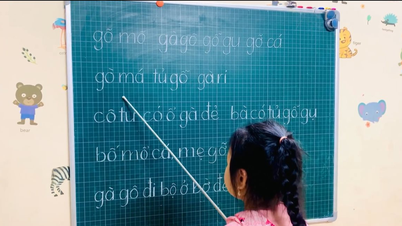 gồ mô gà gô gỗ gụ gỡ cá
gò má tủ gỗ gà ri
cô tư có ổ gà đẻ bà có tủ gỗ gụ
bố mổ cá mẹ gỡ
gà gô đi bộ ở bờ đê